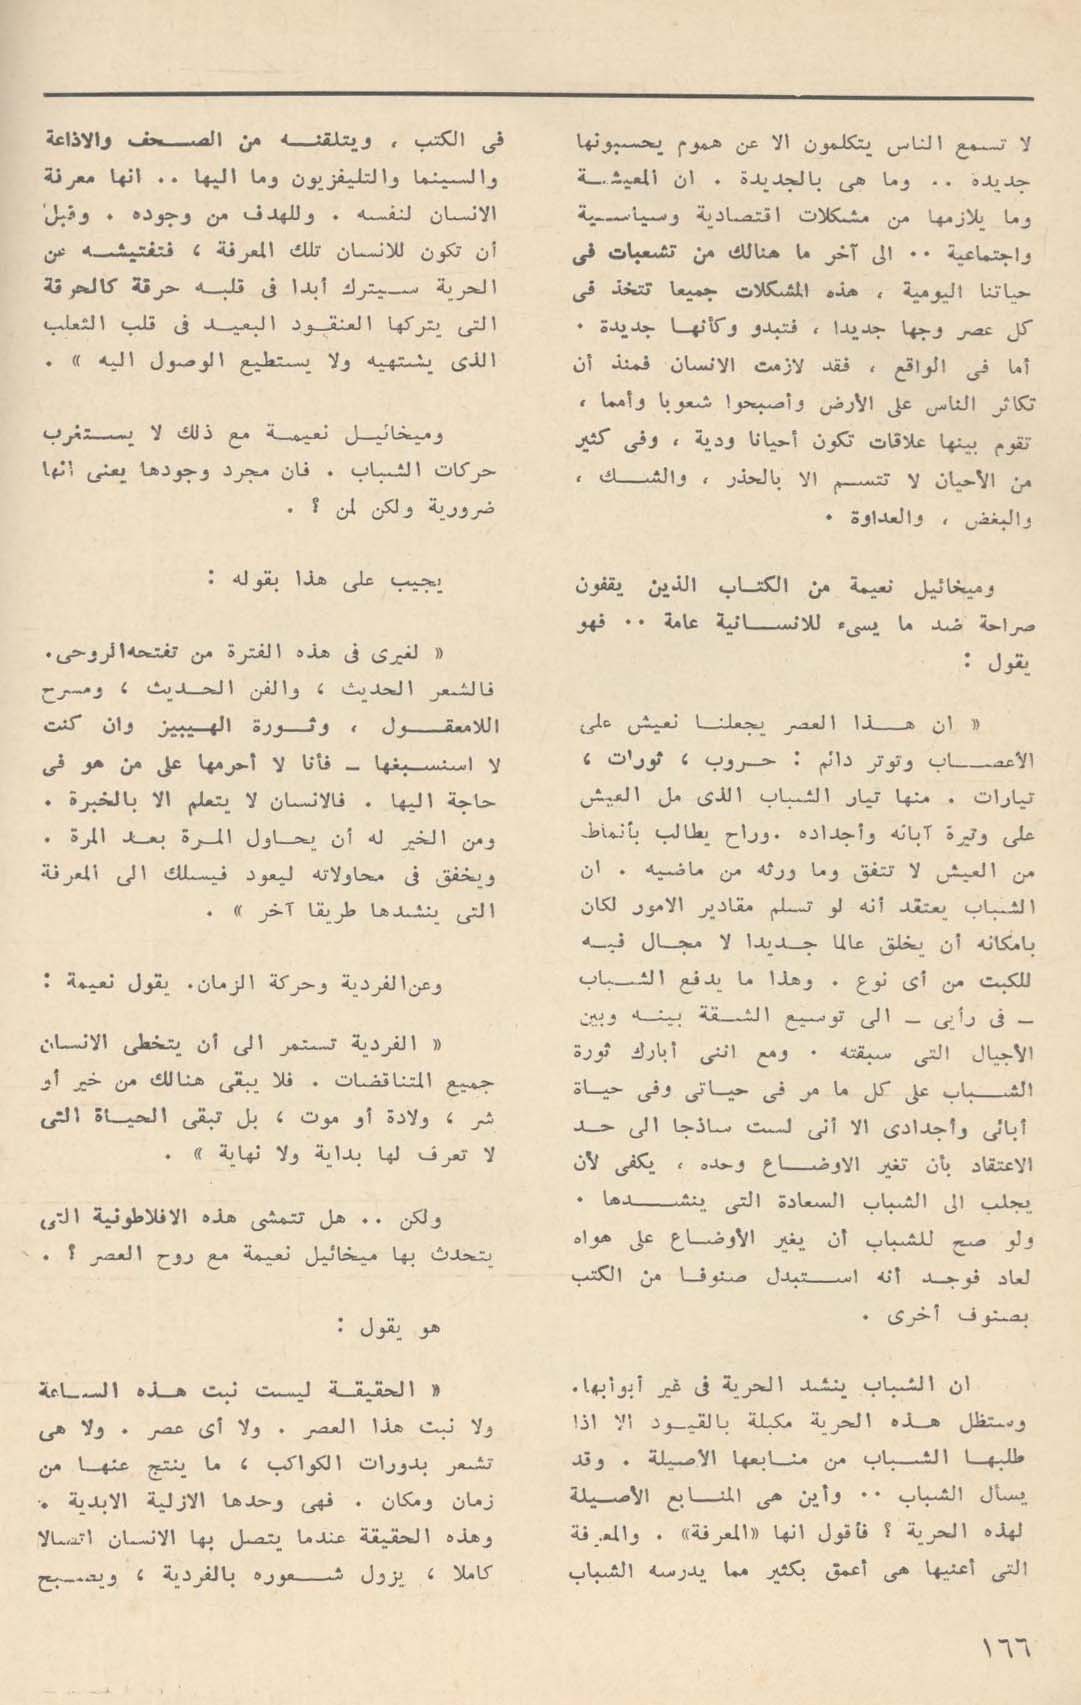 لا تسمع الناس يتكلمون الا عن هموم يحسبونها
جديدة .. وما هى بالجديدة . ان المعيشة
وما يلازمها من مشكلات اقتصادية وسياسية
واجتماعية .. الى آخر ما هنالك من تشعبات فى
حياتنا اليومية ، هذه المشكلات جميعا تتخذ فى
كل عصر وجها جديدا ، فتبدو وكأنها جديدة .
أما فى الواقع ، فقد لازمت الانسان فمنذ أن
تكاثر الناس على الأرض وأصبحوا شعوبا وأمما ،
تقوم بينها علاقات تكون أحيانا ودية ، وفى كثير
من الأحيان لا تتسم الا بالحذر ، والشك ،
والبغض ، والعداوة .
وميخائيل نعيمة من الكتاب الذين يقفون
صراحة ضد ما يسىء للانسانية عامة .. فهو
يقول :
« ان هذا العصر يجعلنا نعيش على
الأعصاب وتوتر دائم : حروب ، ثورات ،
تيارات . منها تيار الشباب الذى مل العيش
على وتيرة آبائه وأجداده .وراح يطالب بأنماط
من العيش لا تتفق وما ورثه من ماضيه . ان
الشباب يعتقد أنه لو تسلم مقادير الامور لكان
بامكانه أن يخلق عالما جديدا لا مجال فيه
للكبت من أى نوع . وهذا ما يدفع الشباب
- فى رأيى - الى توسيع الشقة بينه وبين
الأجيال التى سبقته . ومع اننى أبارك ثورة
الشباب على كل ما مر فى حياتى وفى حياة
أبائى وأجدادى الا أنى لست ساذجا الى حد
الاعتقاد بأن تغير الاوضاع وحده ، يكفى لأن
يجلب الى الشباب السعادة التى ينشدها .
ولو صح للشباب أن يغير الأوضاع على هواه
لعاد فوجد أنه استبدل صنوفا من الكتب
بصنوف أخرى .
ان الشباب ينشد الحرية فى غير أبوابها.
وستظل هذه الحرية مكبلة بالقيود الا اذا
طلبها الشباب من منابعها الأصيلة . وقد
يسأل الشباب .. وأين هى المنابع الأصيلة
لهذه الحرية ؟ فأقول انها «المعرفة» . والمعرفة
التى أعنيها هى أعمق بكثير مما يدرسه الشباب
فى الكتب ، ويتلقنه من الصحف والاذاعة
والسينما والتليفزيون وما اليها .. انها معرفة
الانسان لنفسه . وللهدف من وجوده . وقبل
أن تكون للانسان تلك المعرفة ، فتفتيشه عن
الحرية سيترك أبدا فى قلبه حرقة كالحرقة
التى يتركها العنقود البعيد فى قلب الثعلب
الذى يشتهيه ولا يستطيع الوصول اليه » .
وميخائيل نعيمة مع ذلك لا يستغرب
حركات الشباب . فان مجرد وجودها يعنى أنها
ضرورية ولكن لمن ؟ .
يجيب على هذا بقوله :
« لغيرى فى هذه الفترة من تفتحه الروحى.
فالشعر الحديث ، والفن الحديث ، ومسرح
اللامعقول ، وثورة الهيبيز وان كنت
لا استسيغها - فأنا لا أحرمها على من هو فى
حاجة اليها . فالانسان لا يتعلم الا بالخبرة .
ومن الخير له أن يحاول المرة بعد المرة .
ويخفق فى محاولاته ليعود فيسلك الى المعرفة
التى ينشدها طريقا آخر » .
وعن الفردية وحركة الزمان. يقول نعيمة :
« الفردية تستمر الى أن يتخطى الانسان
جميع المتناقضات . فلا يبقى هنالك من خير أو
شر ، ولادة أو موت ، بل تبقى الحياة التى
لا تعرف لها بداية ولا نهاية » .
ولكن .. هل تتمشى هذه الافلاطونية التى
يتحدث بها ميخائيل نعيمة مع روح العصر ؟ .
هو يقول :
« الحقيقة ليست نبت هذه الساعة
ولا نبت هذا العصر . ولا أى عصر . ولا هى
تشعر بدورات الكواكب ، ما ينتج عنها من
زمان ومكان . فهى وحدها الازلية الابدية .
وهذه الحقيقة عندما يتصل بها الانسان اتصالا
كاملا ، يزول شعوره بالفردية ، ويصبح
١٦٦